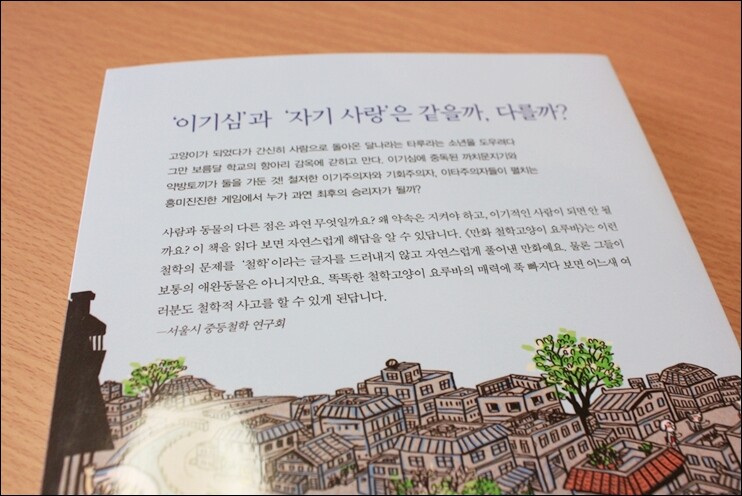 '이기심'과 '자기 사랑'은 같을까, 다를까?
고양이가 되었다가 간신히 사람으로 돌아온 달나라는 타루라는 소년을 도우려다
그만 보름달 학교의 항아리 감옥에 갇히고 만다. 이기심에 중독된 까치문지기와
약방토끼가 둘을 가둔 것! 철저한 이기주의자와 기회주의자, 이타주의자들이 펼치는
흥미진진한 게임에서 누가 과연 최후의 승리자가 될까?
사람과 동물의 다른 점은 과연 무엇일까요? 왜 약속은 지켜야 하고, 이기적인 사람이 되면 안 될
까요? 이 책을 읽다 보면 자연스럽게 해답을 알 수 있답니다. 《만화 철학고양이 요루바》는 이런
철학의 문제를 '철학'이라는 글자를 드러내지 않고 자연스럽게 풀어낸 만화예요. 물론 그들이
보통의 애완동물은 아니지만요. 똑똑한 철학고양이 요루바의 매력에 푹 빠지다 보면 어느새 여
러분도 철학적 사고를 할 수 있게 된답니다.
―서울시 중등철학 연구회